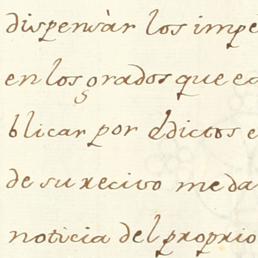 dispensàr los impe
en los grados que ec
blicar por èdictos e
de su recivo me da
noticia del proprio